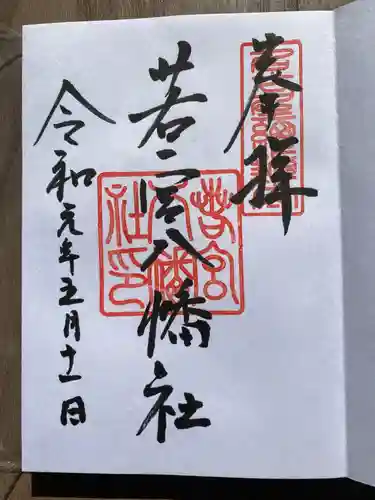 奉拝
若宮八幡社
令和元年五月十一日
若宮八幡社印